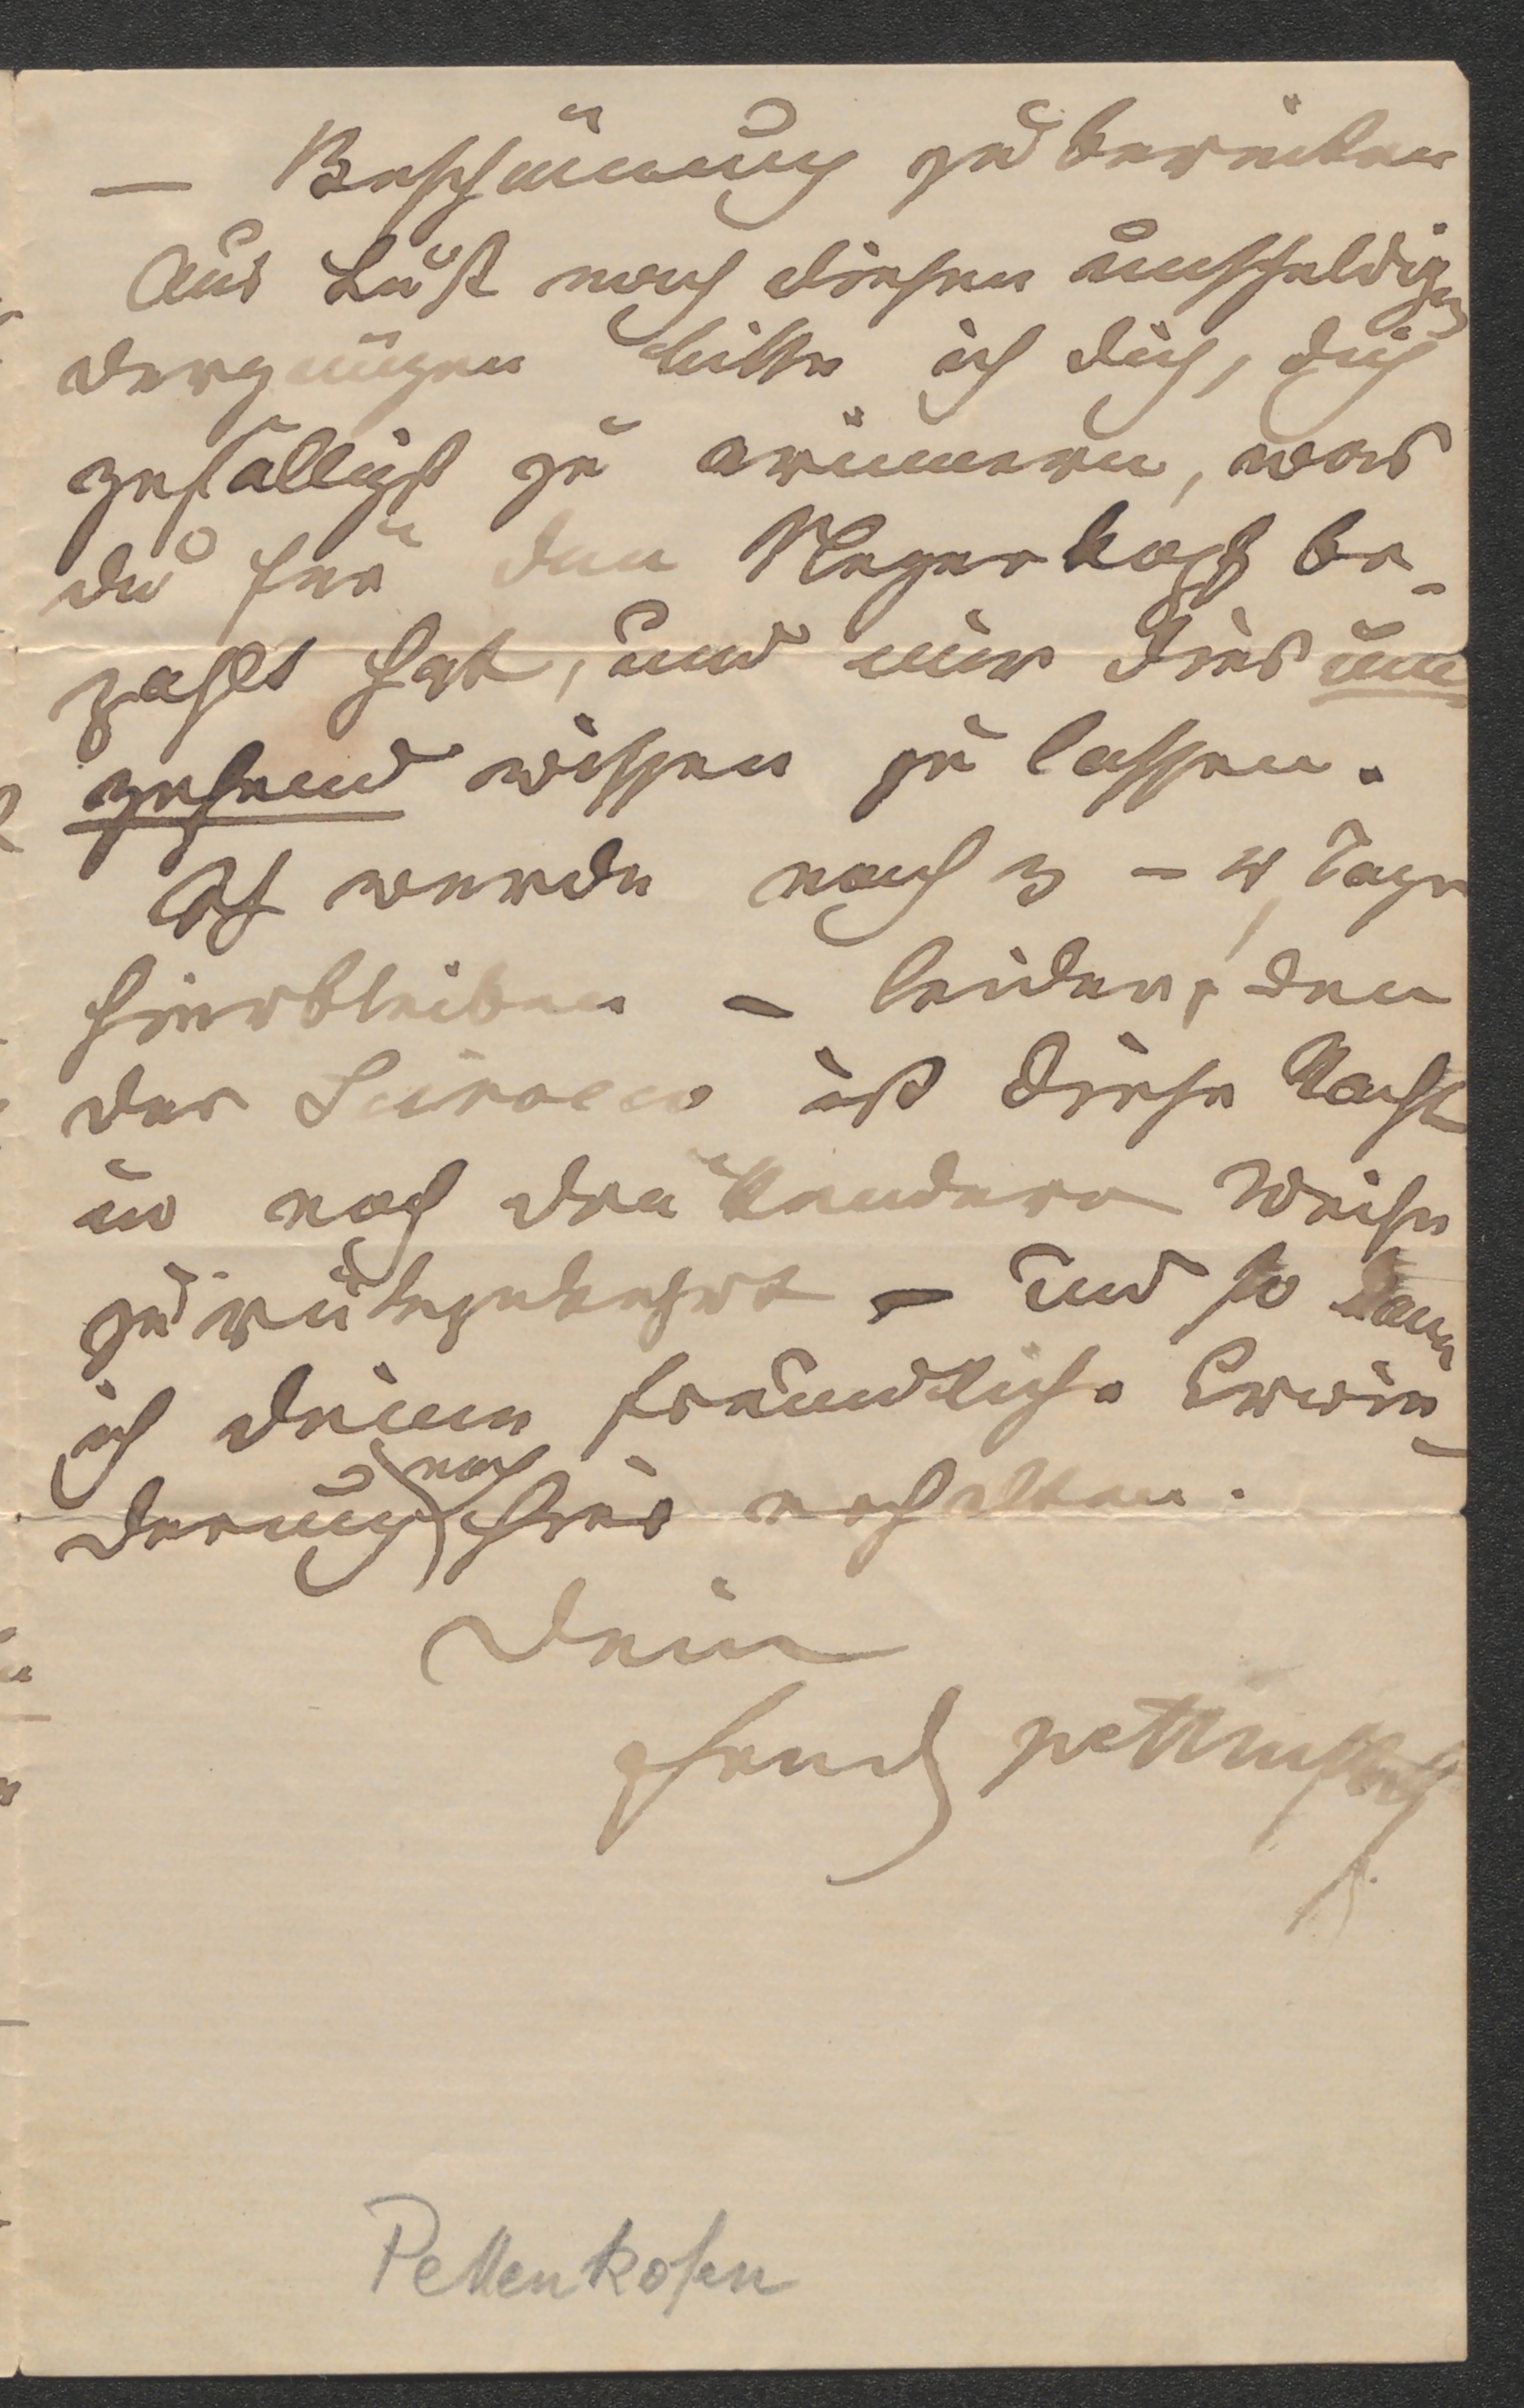 — Beschämung zu bereiten
Aus Lust nach diesen unschuldigen
Vergnügen bitte ich dich, dich
gefälligst zu erinnern, was
du für den Negerkopf be-
zahlt hast, und mir dies um-
gehend wissen zu lassen.
Ich werde noch 3 – 4 Tage
hierbleiben – leider, den
der Scirocco ist diese Nacht
in noch drükendern Weise
zurükgekehrt – und so kann
ich deine freundliche Erwie-
derung noch hier erhalten.
Dein
Pettenkofen